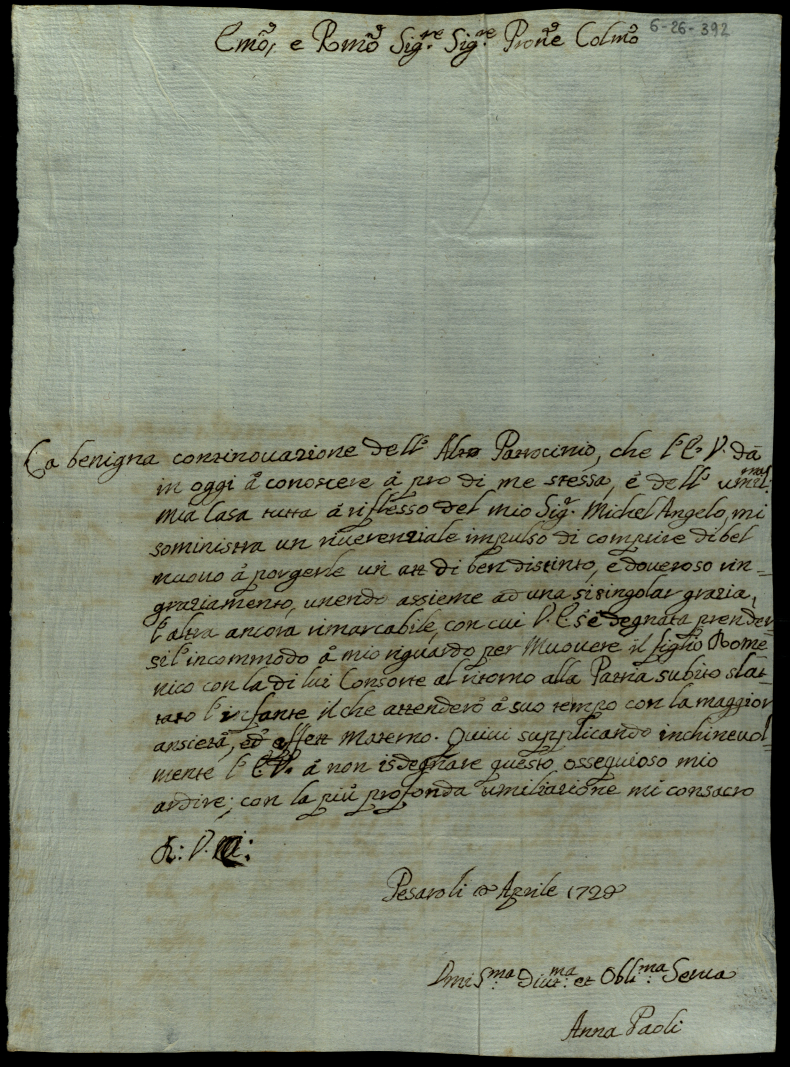 6-26-392
Emo, e Rmo Sig.re Sig.re Prone Colmo
La benigna continouazione dell' Alto Patrocinio, che l' E. V. dà
in oggi à conoscere à pro di me stessa, e dell' umil.ma
mia Casa tutta à riflesso del mio Sig.r Michel Angelo, mi
soministra un riuerenziale impulso di compire di bel
nuouo à porgerle un att di ben distinto, e doueroso rin-
graziamento, unendo assieme ad una si singolar grazia,
l' altra ancora rimarcabile, con cui V. E. si è degnata prender
si l' incommodo à mio riguardo per Muouere il figlio Dome
nico con la di lui Consorte al ritorno alla Patria subito slat-
tato l' infante il che attenderò à suo tempo con la maggior
ansietà, ed affett Materno. Quiui supplicando inchineuol
mente l' E. V. à non isdegnare questo osseguioso mio
ardire; con la più profonda umiliazione mi consacro
V.
Pesaro li Aprile 1729
Diut.ma et Obli.ma Serua
Anna Paoli